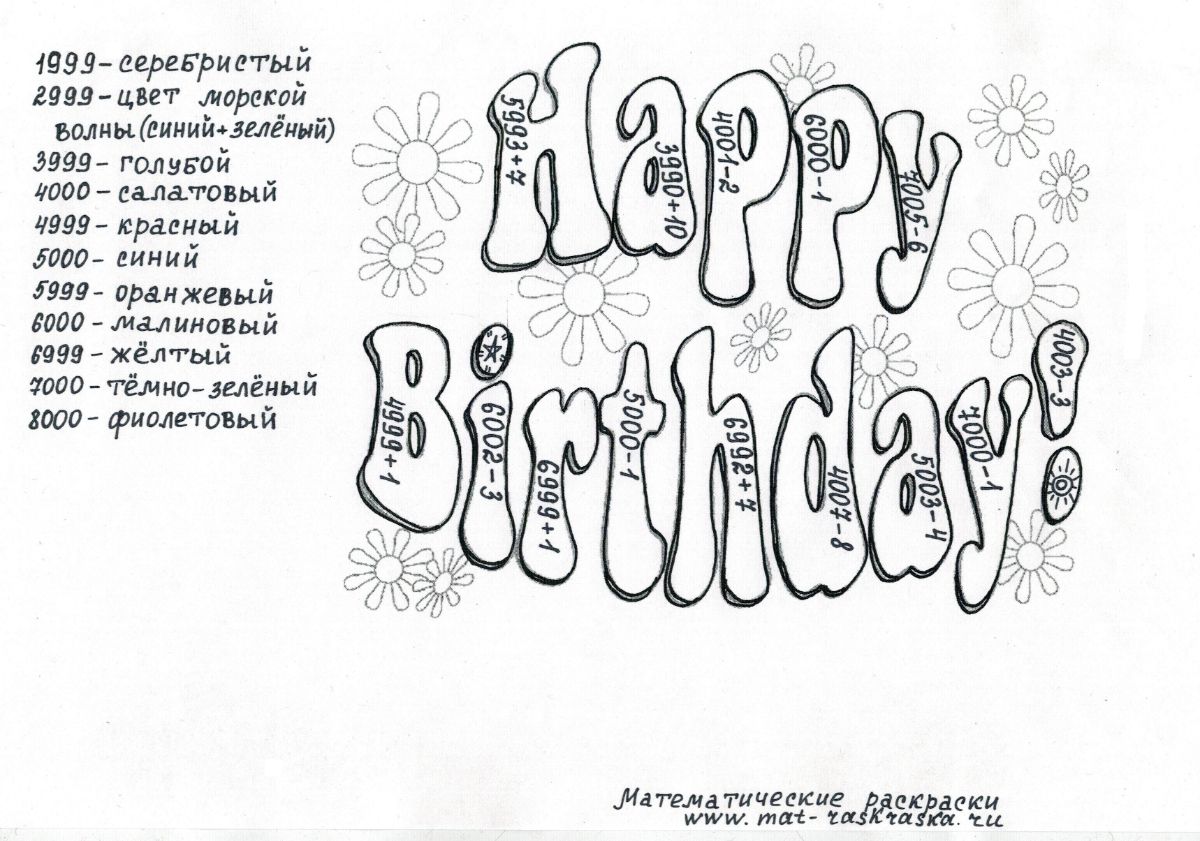 1999-серебристый
2999-цвет морской
волны(синий+зелёный)
3999-голубой
4000-салатовый
4999-красный
5000-синий
5999-оранжевый
6000-малиновый
6999-жёлтый
7000-тёмно-зелёный
8000-фиолетовый
Happy
5993+7
3990+10
4001-2
6000-1
7005-6
Birthday!
4999+1
6002-3
6999+1
5000-1
6992+7
4007-8
5003-4
7000-1
4003-3
Математические раскраски
www.mat-raskraska.ru